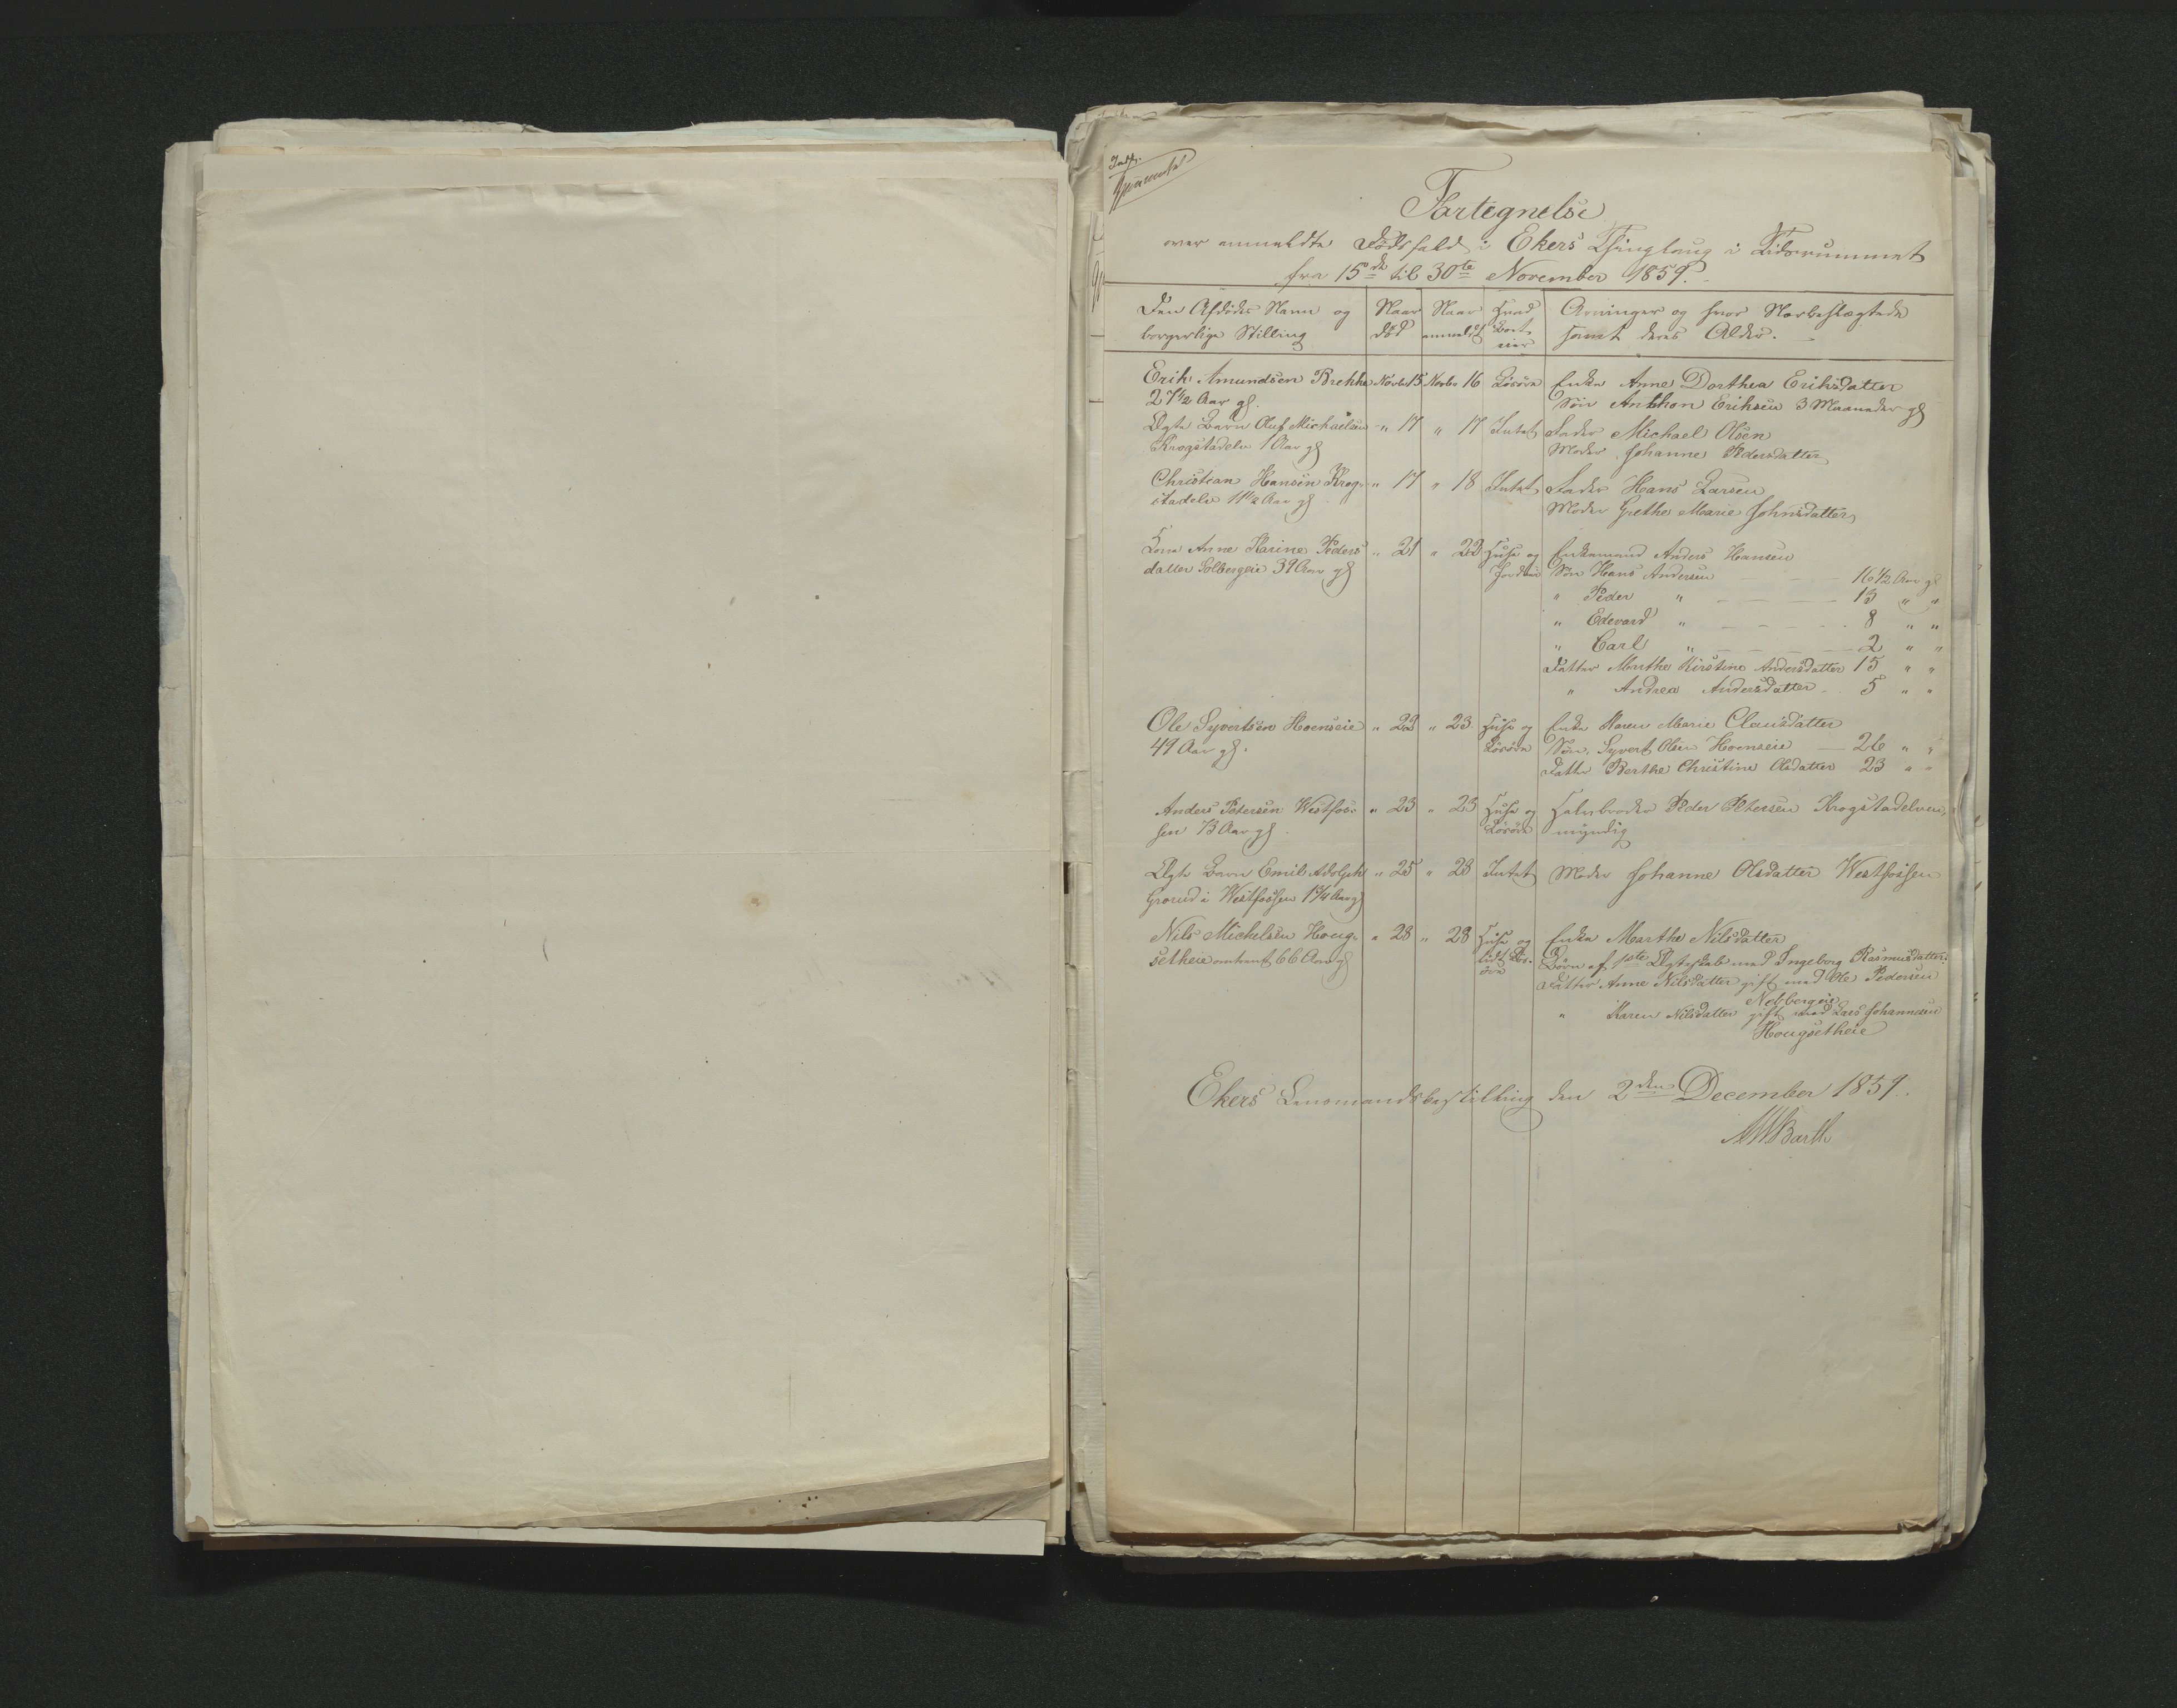 Fortegnelse
over anmeldte Dødsfald i Ekers Thinglaug i Tidsrummet
fra 15de til 30te November 1859.
Den Afdødes Navn og borgerlige Stilling | Naar død | Naar anmeldt | Hvad Boet eier | Arvinger og hvor Nærbeslægtede samt deres Alder.
Erik Amundsen Brekke | Novbr 15 | Novbr 16 | Løsøre | Enke Anne Dorthea Eriksdatter
27 1/2 Aar gl. | Søn Anthon Eriksen 3 Maaneder gl
Ægte Barn Oluf Michaelsen | " 17 | " 17 | Intet | Fader Michael Olsen
Krogstadelv 1 Aar gl | Moder Johanne Pedersdatter
Christian Hansen Krog- | " 17 | " 18 | Intet | Fader Hans Larsen
stadelv 11 1/2 Aar gl | Moder Grethe Marie Johnsdatter
Kone Anne Karine Peders | " 21 | " 22 | Huse og | Enkemand Anders Hansen
datter Solbergeie 39 Aar gl | Jordvei | Søn Hans Andersen 16 1/2 Aar gl
" Peder " 13 " "
" Edevard " 8 " "
" Carl " 2 " "
Datter Marthe Kirstine Andersdatter 15 " "
" Andrea Andersdatter 5 " "
Ole Syvertsen Hoenseie | " 22 | " 23 | Huse og | Enke Karen Marie Clausdatter
49 Aar gl. | Løsøre | Søn Syvert Olsen Hoenseie 26 " "
Datter Berthe Christine Olsdatter 23 " "
Anders Petersen Westfos- | " 23 | " 23 | Huse og | Halvbroder Peder Petersen Krogstadelven,
sen 73 Aar gl | Løsøre | myndig
Ægte Barn Emil Adolph | " 25 | " 28 | Intet | Moder Johanne Olsdatter Westfossen
i Westfossen 1 3/4 Aar gl
Nils Michelsen Houg- | " 28 | " 28 | Huse og | Enke Marthe Nilsdatter
setheie omtrent 66 Aar gl | lidt Løs- | Børn af 1ste Ægteskab med Ingeborg Rasmusdatter:
øre | Datter Anne Nilsdatter gift med Ole Pedersen
Nebbergeie
" Karen Nilsdatter gift med Lars Johannesen
Hougsetheie
Ekers Lensmandsbestilling den 2den December 1859.
MWBarth